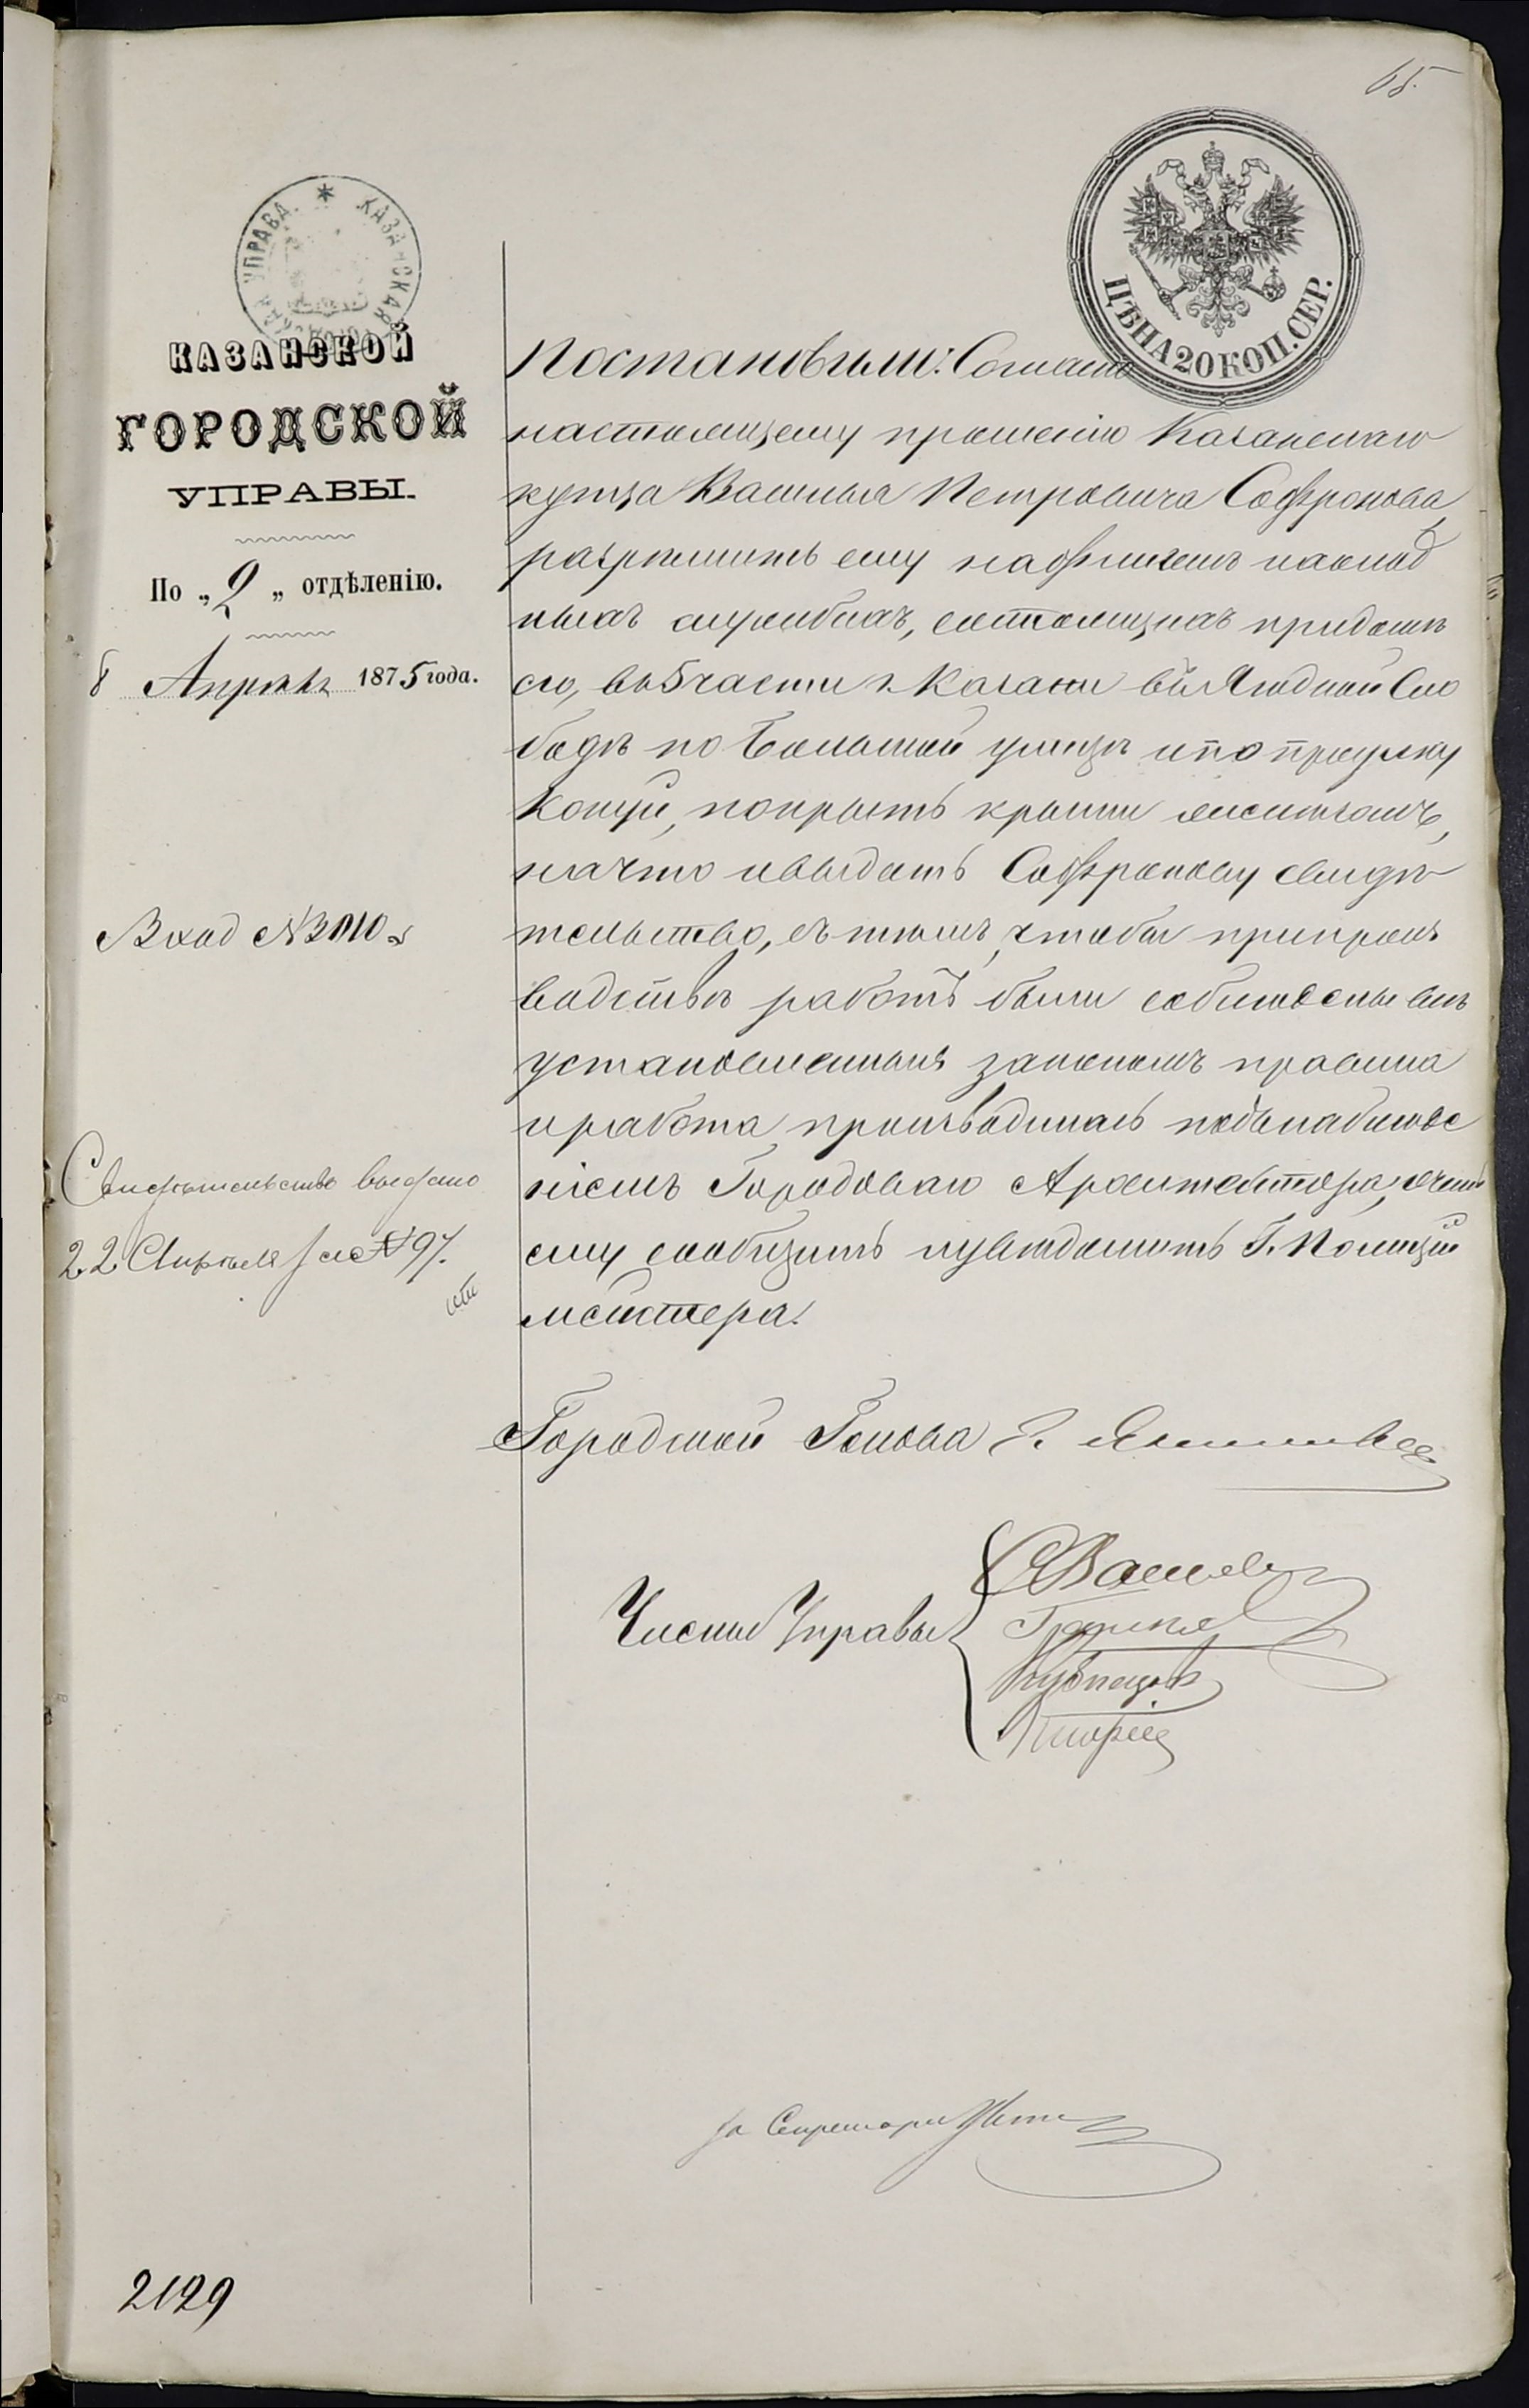 65.
КАЗАНСКАЯ ГОРОДСКАЯ УПРАВА
ЦѢНА 20 КОП. СЕР.
КАЗАНСКОЙ
ГОРОДСКОЙ
УПРАВЫ.
По „2„ отдѣленію.
8 Апрѣля 1875 года.
Вход №3110
Свидѣтельство выдано
22 Апрѣля за №97.
Постановили: Согласно
настоящему прошенію Казанскаго
купца Василья Петровича Софронова
разрѣшить ему на флигелѣ и холод
ныхъ службахъ, состоящихъ при домѣ
его, въ 5 части г. Казани въ Ягодной Сло
бодѣ по Большой улицѣ и по проулку
покрыть крыши желѣзомъ,
на что и выдать Софронову свидѣ
тельство, съ тѣмъ, чтобы при произ
водствѣ работъ были соблюдены всѣ
установленныя закономъ правила
и работа производилась подъ наблюде
ніемъ Городоваго Архитектора, о чемъ
ему сообщить и увѣдомить Г. Полиціи
мейстера.
Городской Голова Э. Янишевскій
Члены Управы
Кузнецовъ
За Секретаря
2129